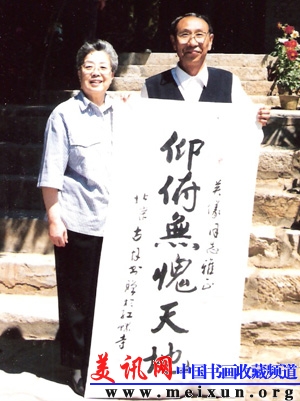 同志雅正
仰俯無愧天地
北京
美讯网 中国书画收藏频道
www.meixun.org